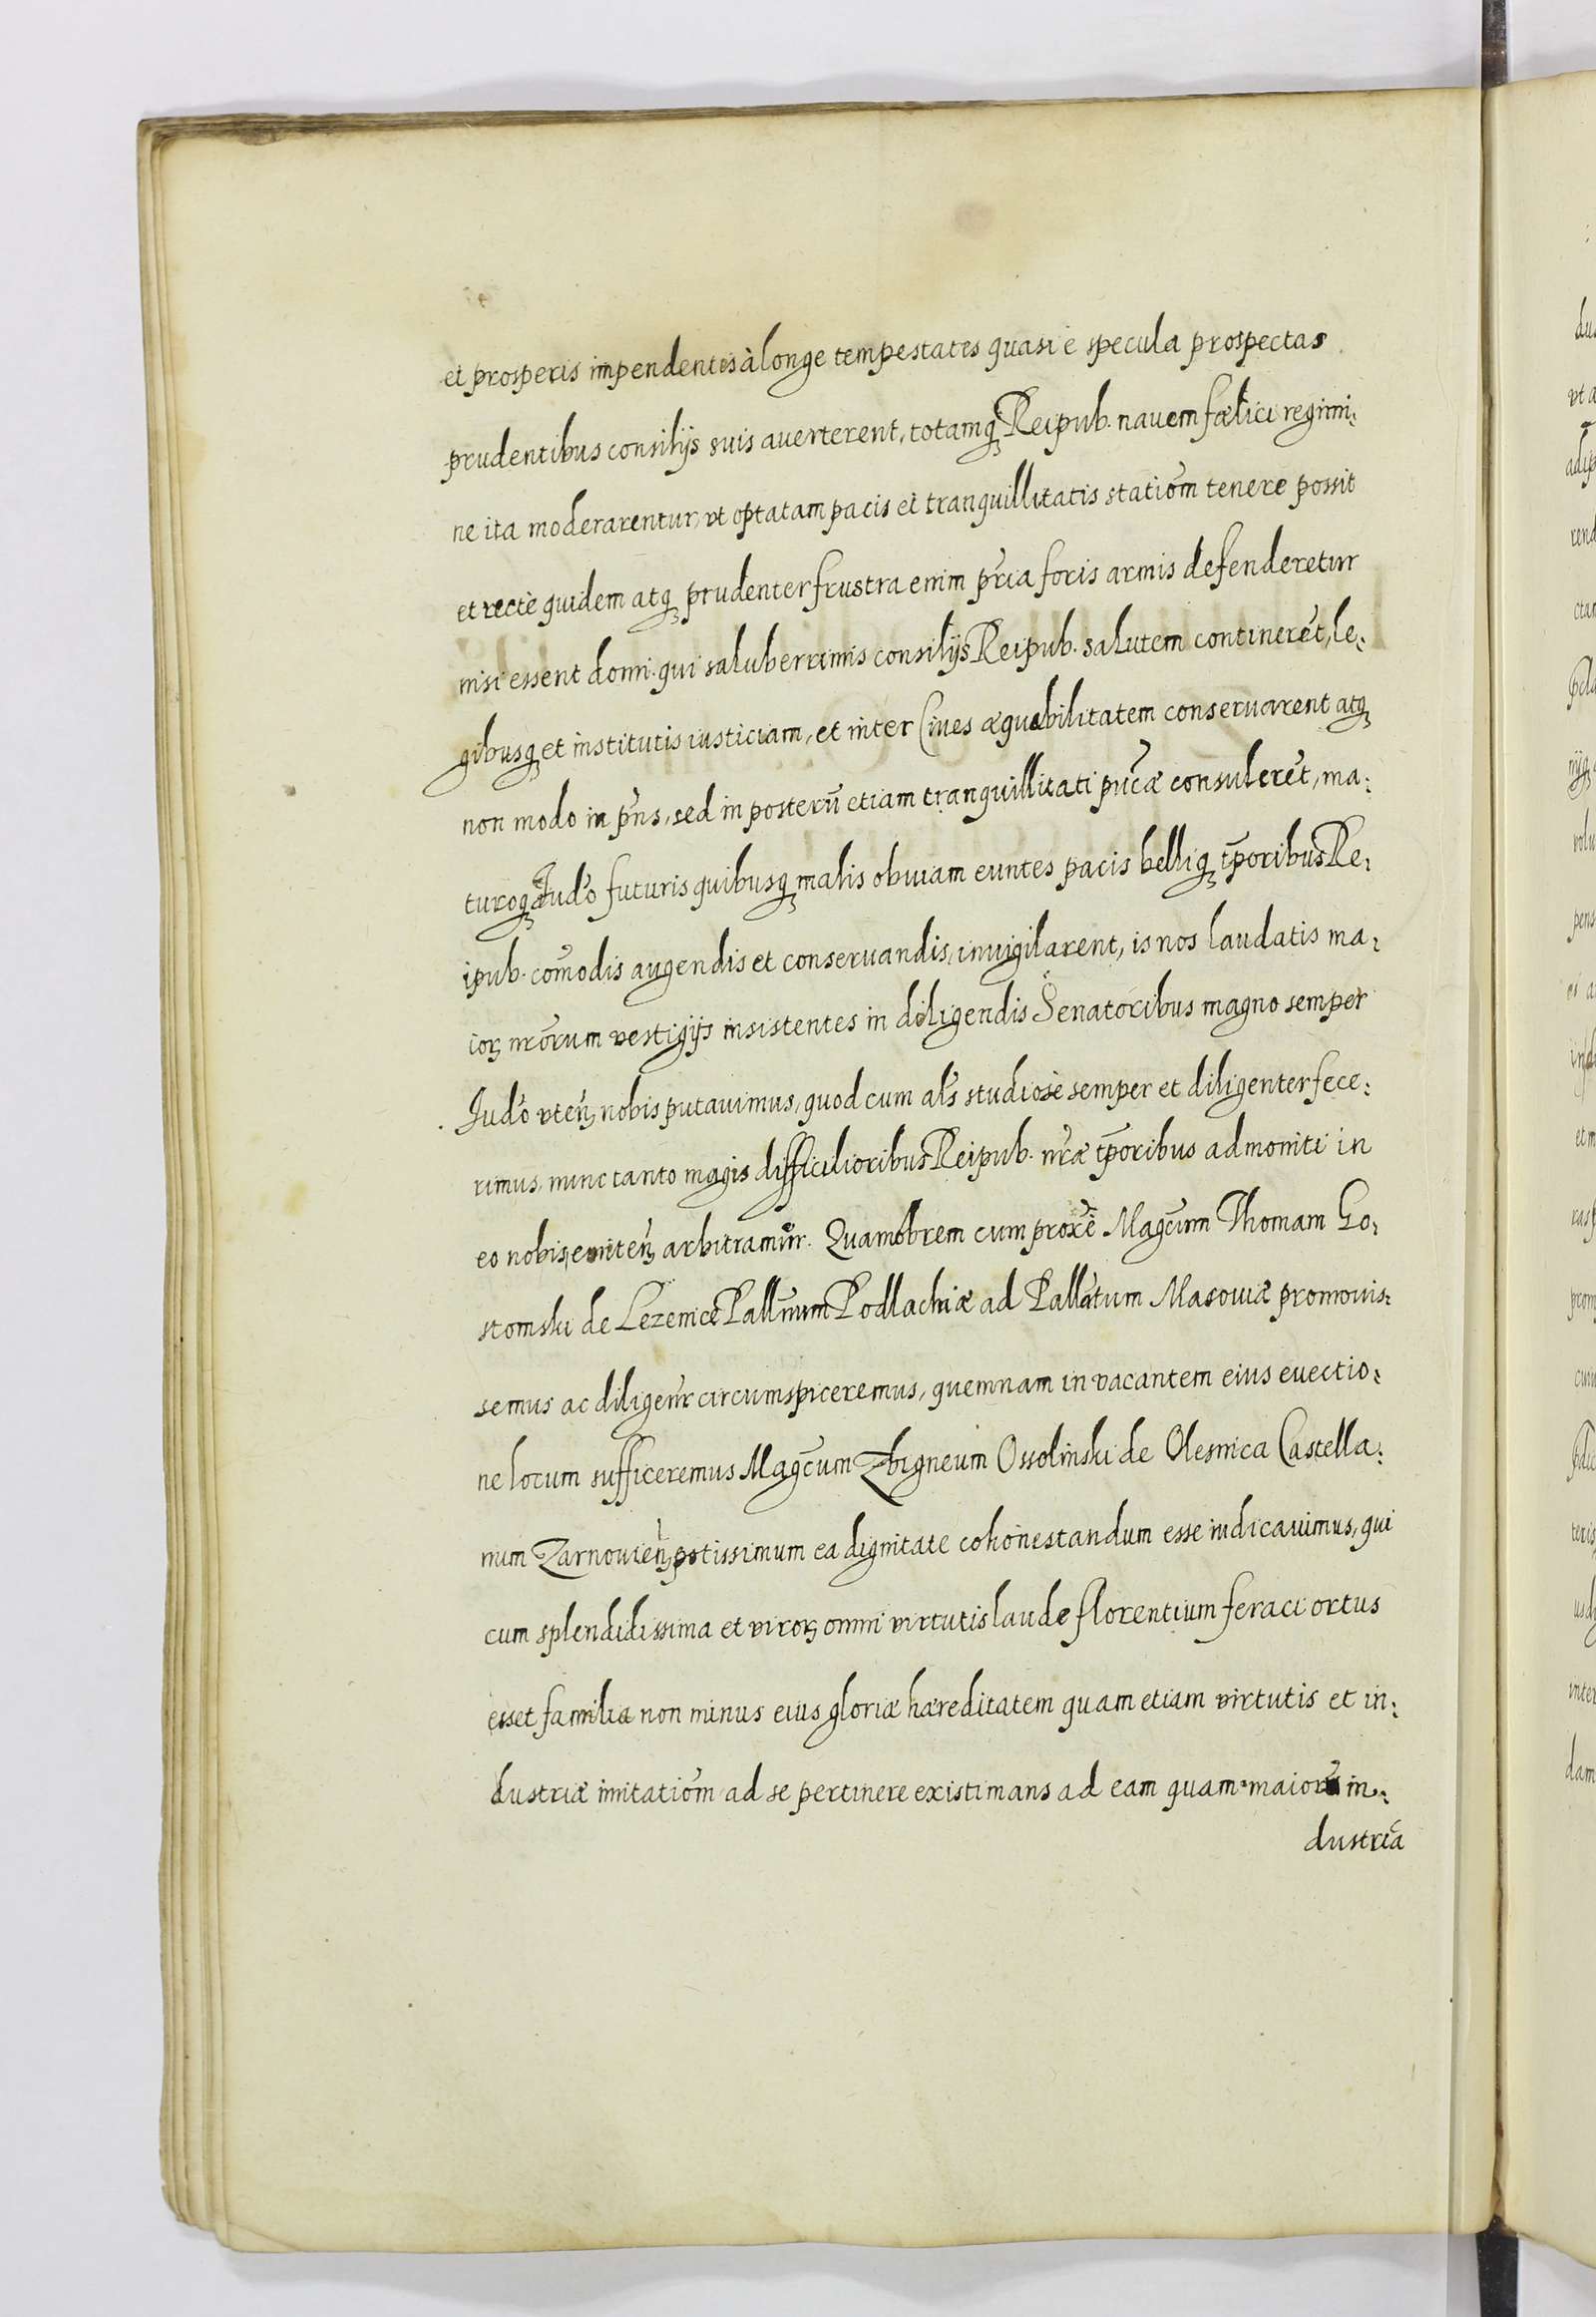 et prosperis impendentes à longe tempestates quasi è specula prospectas
prudentibus consilijs suis auerterent, totamq Reipub. nauem fælici regimi:
ne ita moderarentur, vt optatam pacis et tranquillitatis statiōm tenere possit
et rectè quidem atq prudenter frustra enim pr̄ia foris armis defenderetur
nisi essent domi. qui saluberrimis consilijs Reipub. salutem contineret̄, le:
gibusq et institutis iusticiam, et inter Ciues æquabilitatem conseruarent atq
non modo in pn̄s, sed in posterū etiam tranquillitati pūcæ consuleret̄, ma:
turoq Iudō futuris quibusq malis obuiam euntes pacis belliq tp̄oribus Re:
ipub. com̄odis augendis et conseruandis, inuigilarent, is nos laudatis ma:
ioꝝ nrōrum vestigijs insistentes in diligendis Senatoribus magno semper
Iudō vten̄ nobis putauimus, quod cum al̄s studiosè semper et diligenter fece:
rimus, nunc tanto magis difficilioribus Reipub. nr̄æ tp̄oribus admoniti in
eo nobis, eniten̄ arbitramur. Quamobrem cum proxē Magcūm Thomam Go:
stomski de Lezenice Pallnūm Podlachiæ ad Pallātum Masouiæ promouis:
semus ac diligenr̄ circumspiceremus, quemnam in vacantem eius euectio:
ne locum sufficeremus Magc̄um Zbigneum Ossolinski de Olesnica Castella:
num Zarnouien̄ potissimum ea dignitate cohonestandum esse iudicauimus, qui
cum splendidissima et viroꝝ omni virtutis laude florentium feraci ortus
esset familia non minus eius gloriæ hæreditatem quam etiam virtutis et in:
dustriæ imitatiōm ad se pertinere existimans ad eam quam maiorū in:
dustria